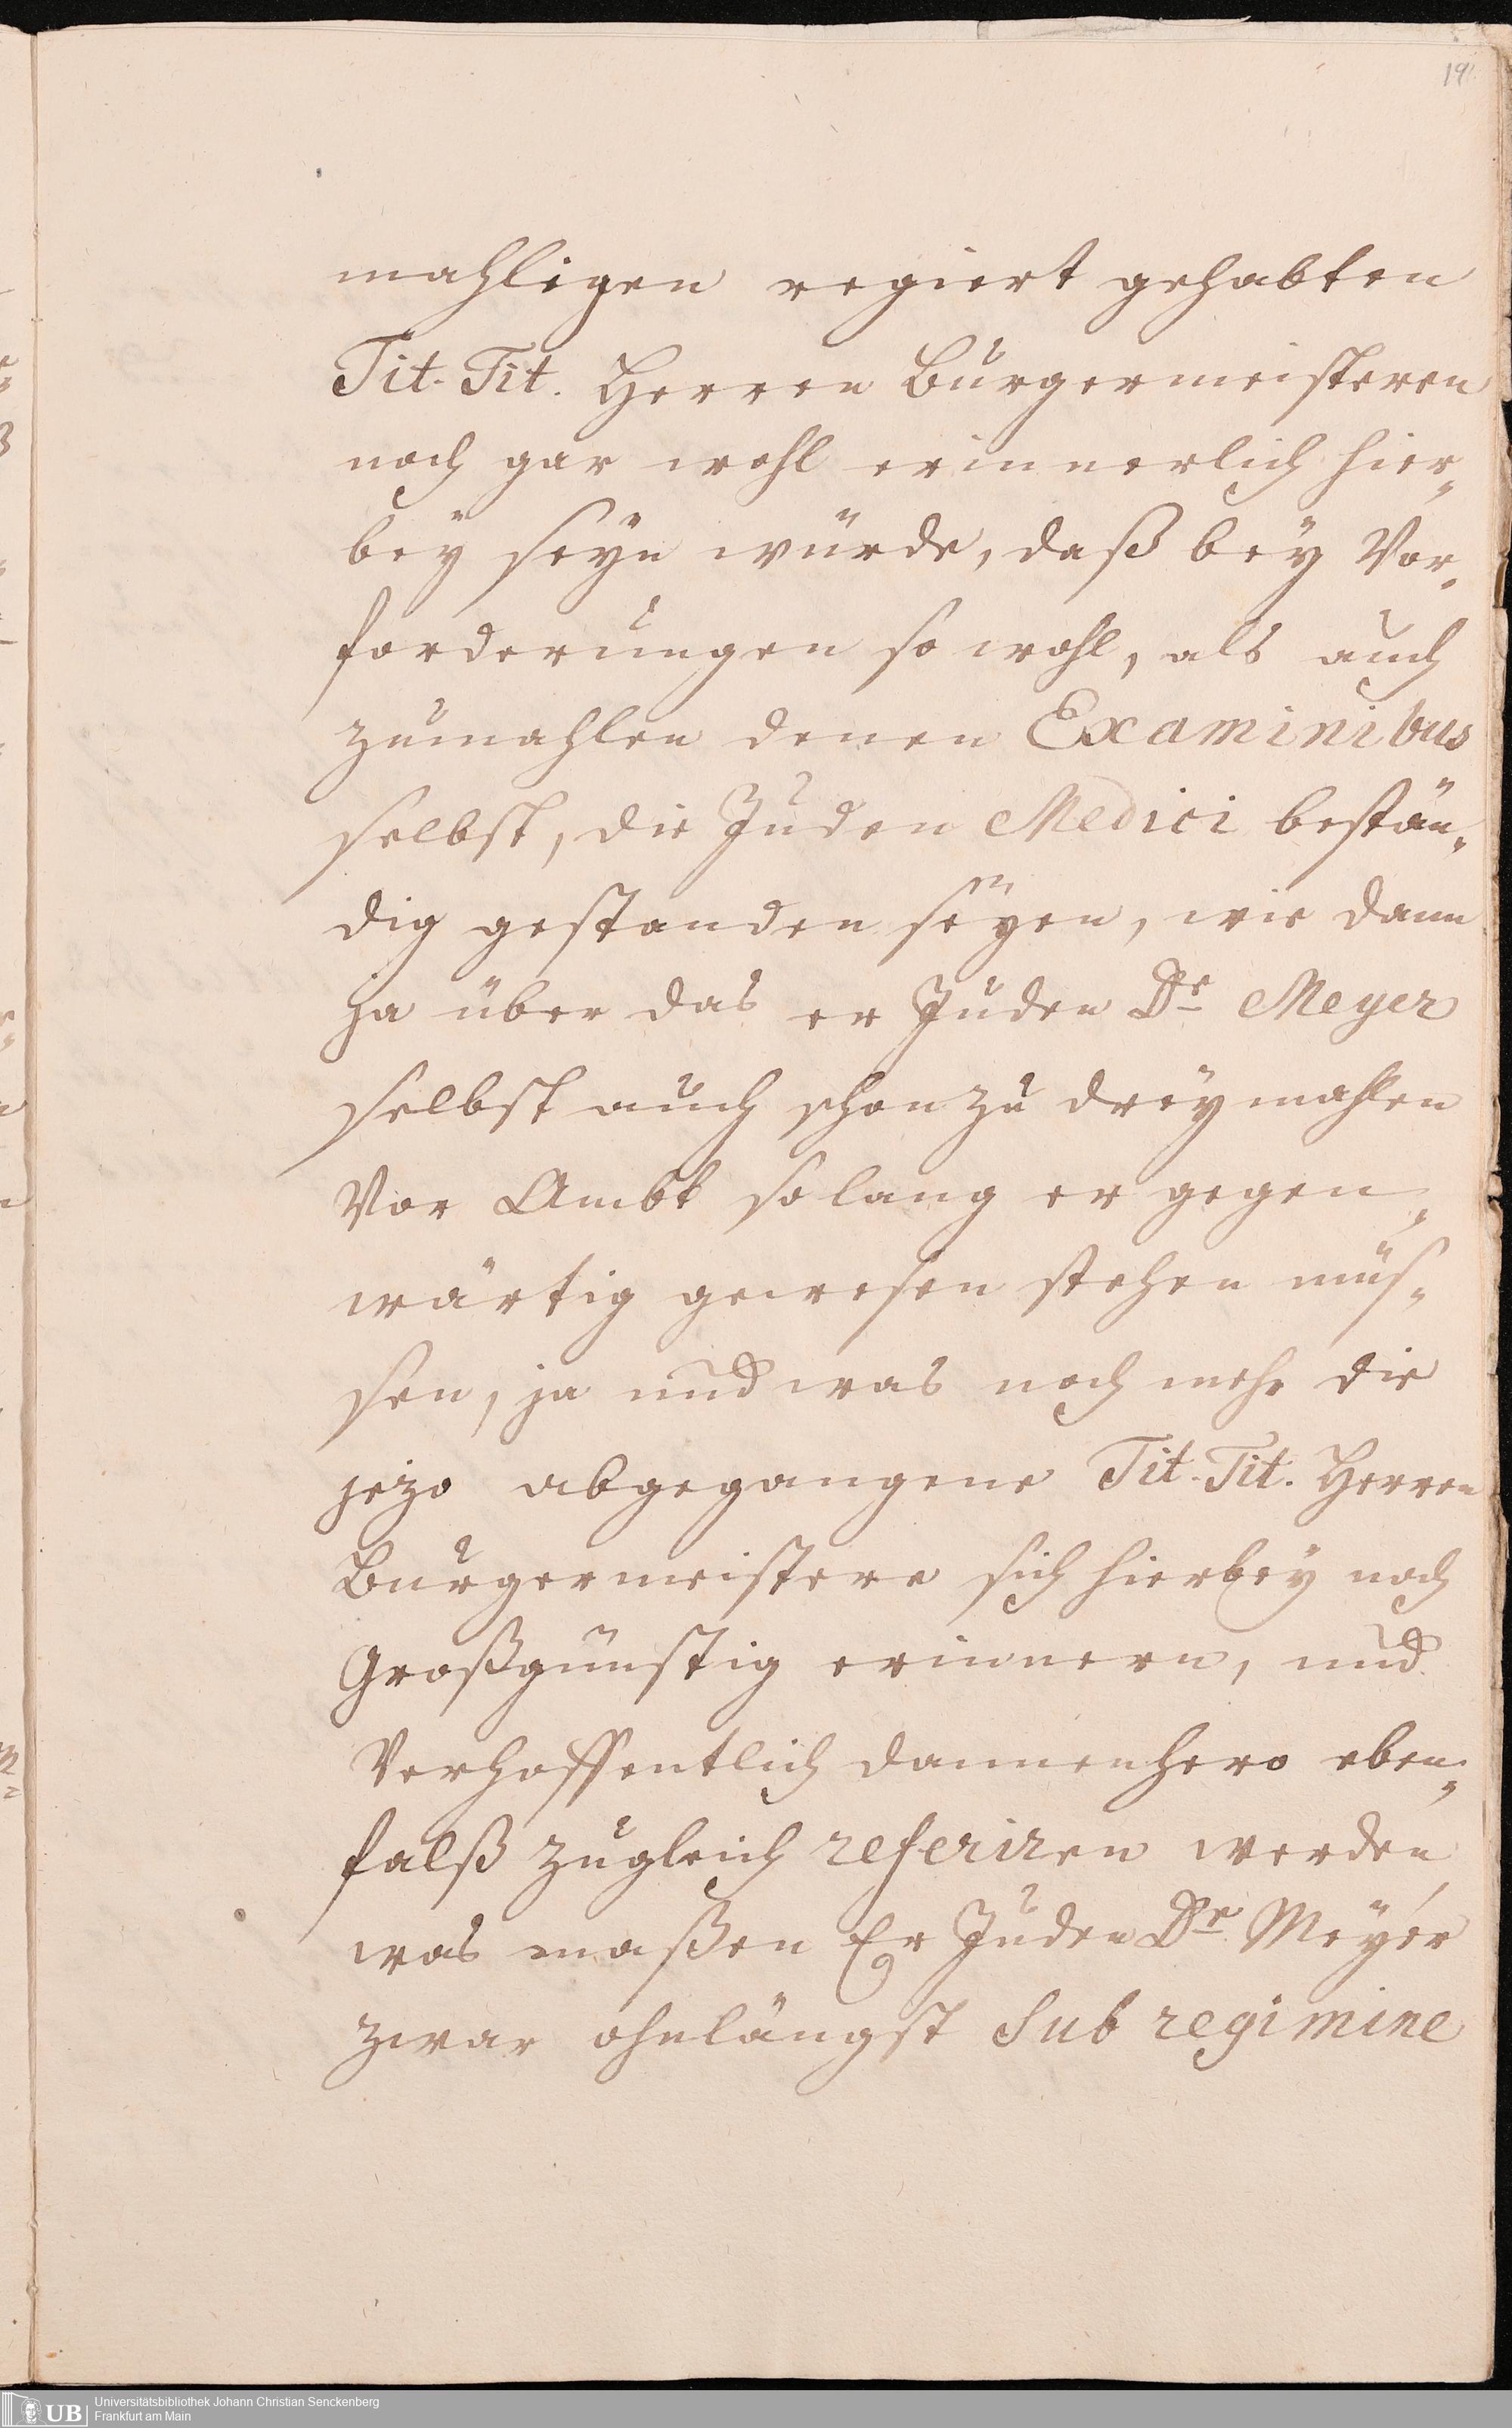 19
mahligen regiert gehabten
Tit. Tit. Herren Burgermeisteren
noch gar wohl erinnerlich hier-
bey seyn würde, daß bey Vor-
forderungen so wohl, als auch
zumahlen denen Examinibus
selbst, die Juden Medici bestän-
dig gestanden seyen, wie dann
ja über das er Juden Dr Meyer
selbst auch schon zu dreymahlen
Vor Ambt so lang er gegen-
wärtig gewesen stehen müs-
sen, ja und was noch mehr die
jezo abgegangene Tit. Tit. Herren
Burgermeistere sich hierbey noch
Großgünstig erinnern, und
Verhoffentlich dannenhero eben-
falß zugleich referiren werden,
was maßen Er Juden Dr Meyer
zwar ohnlängst Sub regimine
UB
Universitätsbibliothek Johann Christian Senckenberg
Frankfurt am Main